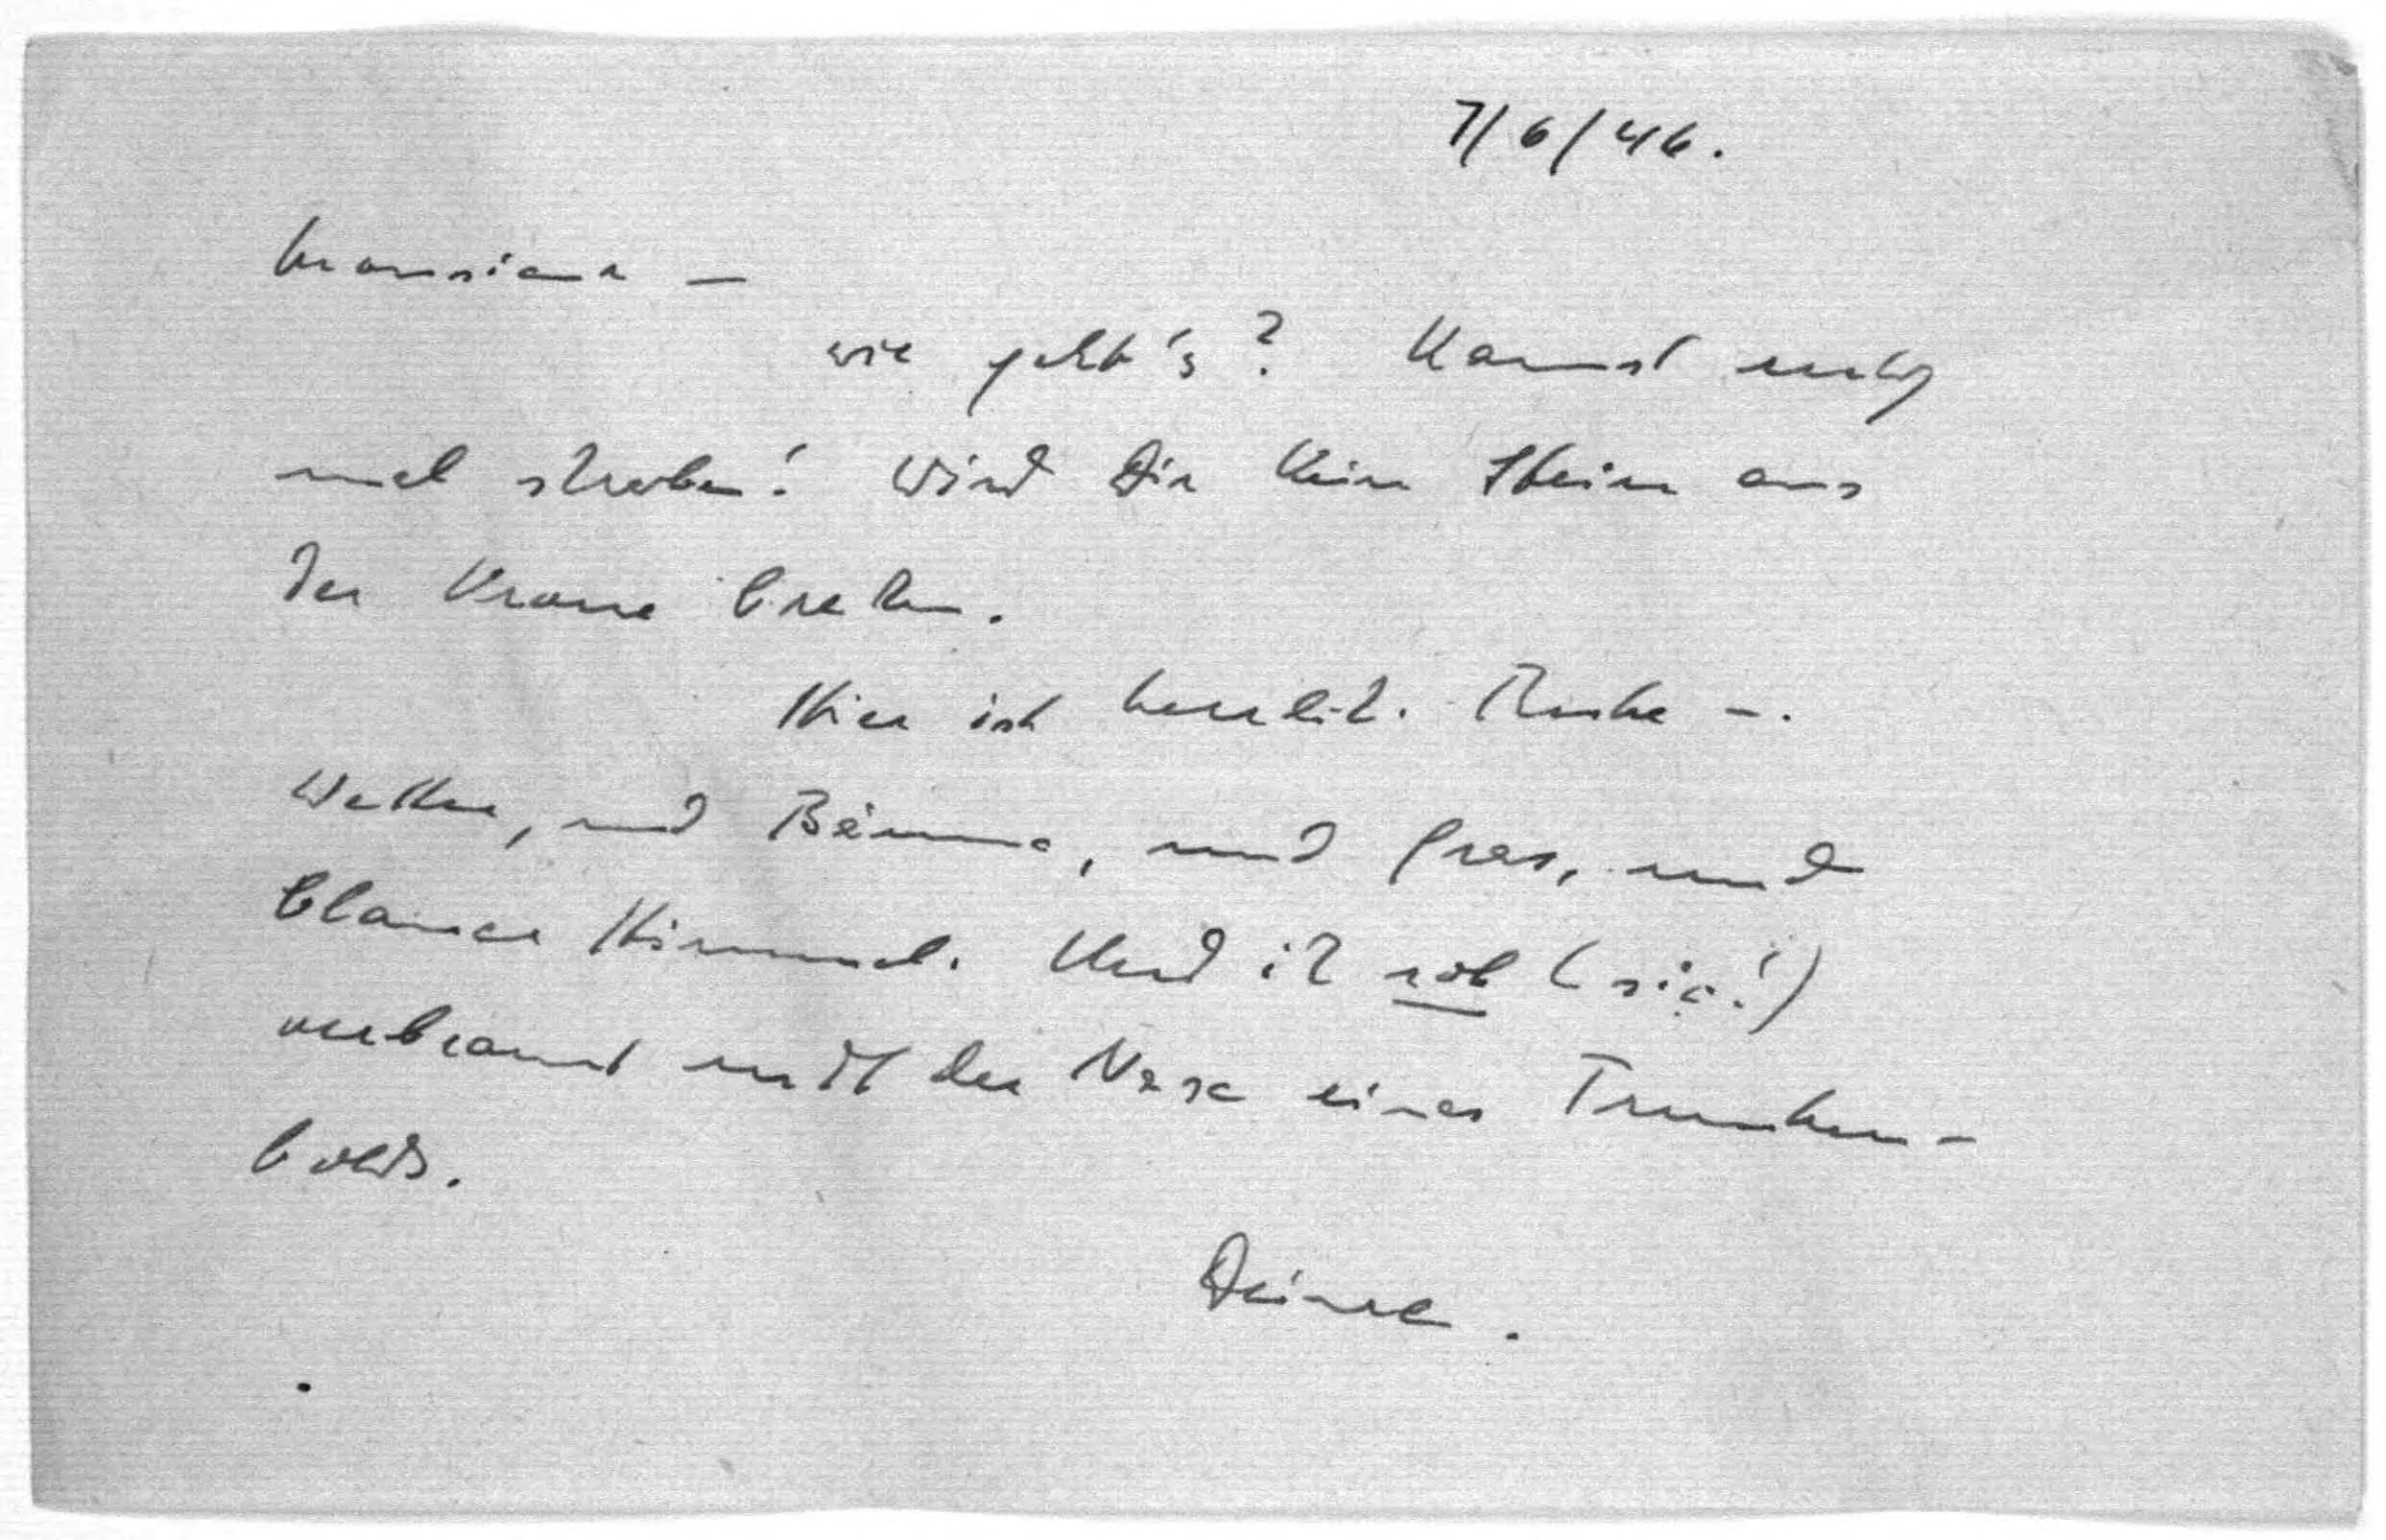 7/6/46.
Monsieur —
wie geht's? Kannst ruhig
mal schreiben! Wird Dir kein Stein aus
der Krone brechen.
Hier ist herrlich. Ruhe –.
Wetter, und Bäume, und Gras, und
blauer Himmel. Und ich rot (sic!)
verbrannt mit der Nase eines Trunken-
bolds.
Deine.